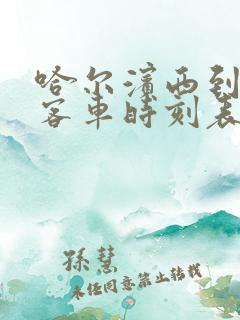 哈尔滨西到
客车时刻表
孫慧
未经同意禁止转载